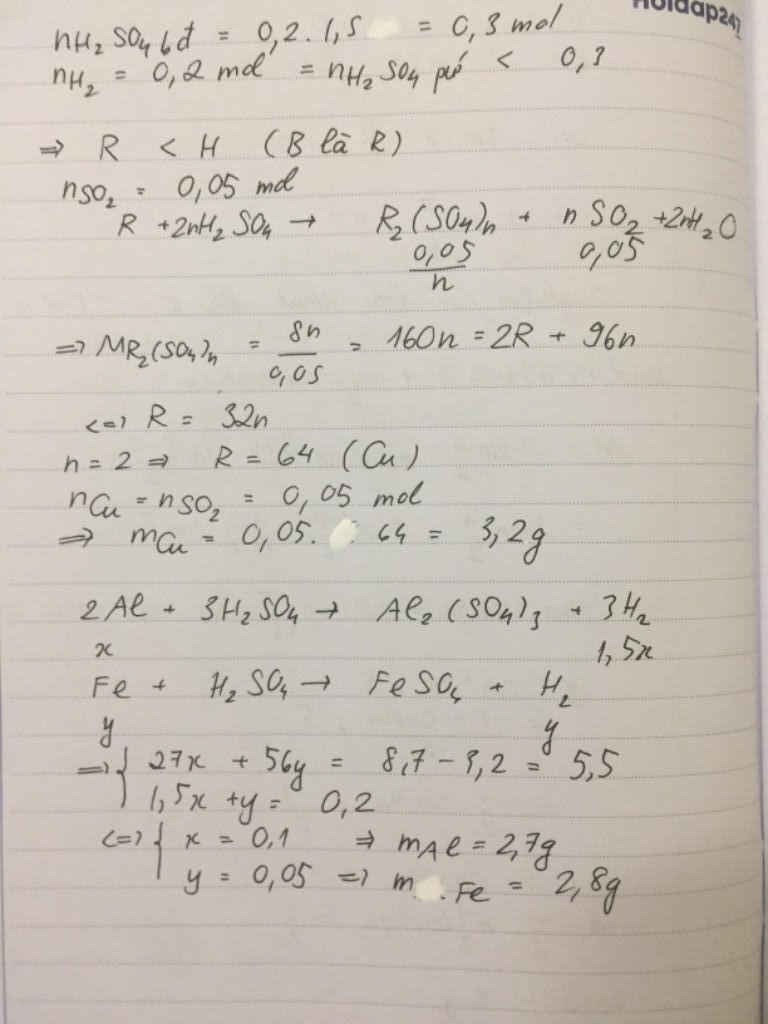 Hoidap247
nH₂SO₄ bđ = 0,2 . 1,5 = 0,3 mol
nH₂ = 0,2 mol = nH₂SO₄ pứ < 0,3
⇒ R < H (B là R)
nSO₂ = 0,05 mol
R + 2nH₂SO₄ → R₂(SO₄)n + nSO₂ + 2nH₂O
0,05/n 0,05
⇒ MR₂(SO₄)n = 8n/0,05 = 160n = 2R + 96n
<=> R = 32n
n = 2 ⇒ R = 64 (Cu)
nCu = nSO₂ = 0,05 mol
⇒ mCu = 0,05. 64 = 3,2g
2Al + 3H₂SO₄ → Al₂(SO₄)₃ + 3H₂
x 1,5x
Fe + H₂SO₄ → FeSO₄ + H₂
y y
⇒ { 27x + 56y = 8,7 - 3,2 = 5,5
1,5x + y = 0,2
<=> { x = 0,1 ⇒ mAl = 2,7g
y = 0,05 => m Fe = 2,8g